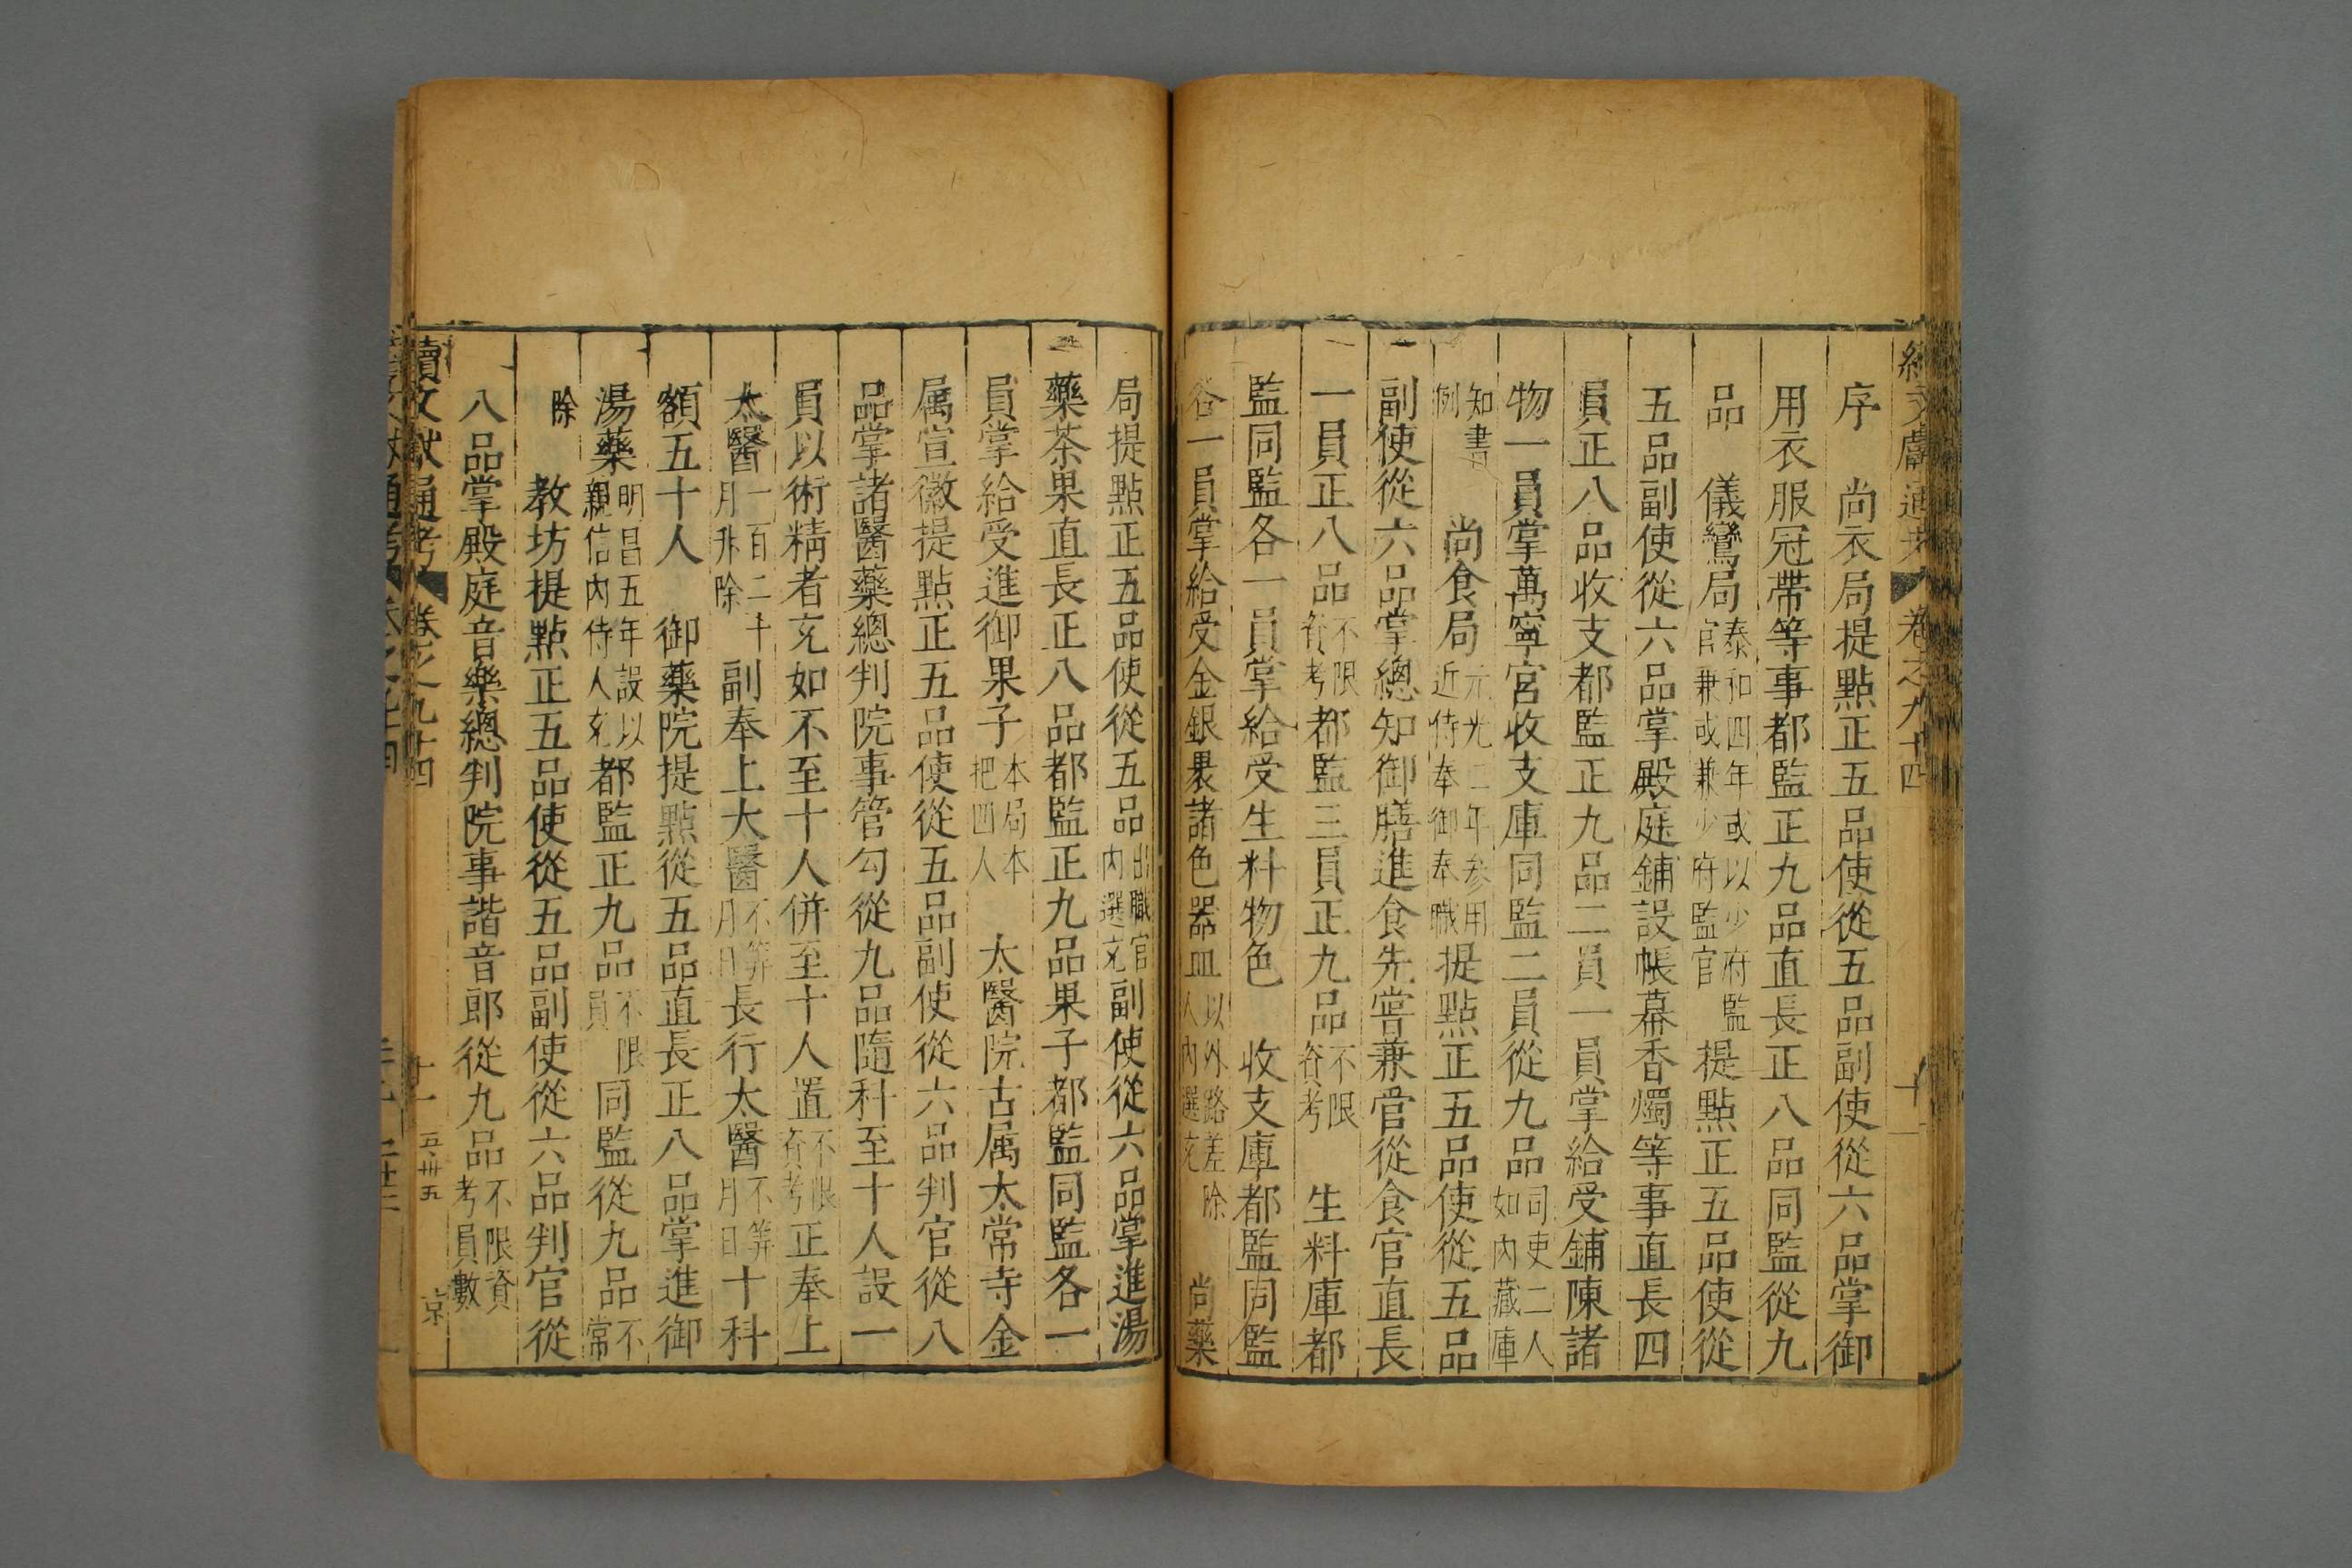 續文獻通考 卷之九十四 十一
序 尚衣局提點正五品使從五品副使從六品掌御
用衣服冠帶等事都監正九品直長正八品同監從九
品 儀鸞局泰和四年或以少府監官兼或兼少府監官提點正五品使從
五品副使從六品掌殿庭鋪設帳幕香燭等事直長四
員正八品收支都監正九品二員一員掌給受鋪陳諸
物一員掌萬寧宮收支庫同監二員從九品司吏二人如內藏庫
知書例 尚食局元光二年参用近侍奉御奉職提點正五品使從五品
副使從六品掌總知御膳進食先嘗兼管從食官直長
一員正八品不限資考都監三員正九品不限資考 生料庫都
監同監各一員掌給受生料物色 收支庫都監同監
各一員掌給受金銀裹諸色器皿以外路差除人內選充 尚藥
局提點正五品使從五品出職官內選充副使從六品掌進湯
藥茶果直長正八品都監正九品果子都監同監各一
員掌給受進御果子本局本把四人 太醫院古属太常寺金
属宣徽提點正五品使從五品副使從六品判官從八
品掌諸醫藥總判院事管勾從九品隨科至十人設一
員以術精者充如不至十人併至十人置不限資考正奉上
太醫一百二十月升除 副奉上大醫不筭月日長行太醫不筭月日十科
額五十人 御藥院提點從五品直長正八品掌進御
湯藥明昌五年設以親信內侍人充都監正九品不限員 同監從九品不常
除 教坊提點正五品使從五品副使從六品判官從
八品掌殿庭音樂總判院事諧音郎從九品不限資考員數
續文獻通考 卷之九十四 十一 五卅五 京